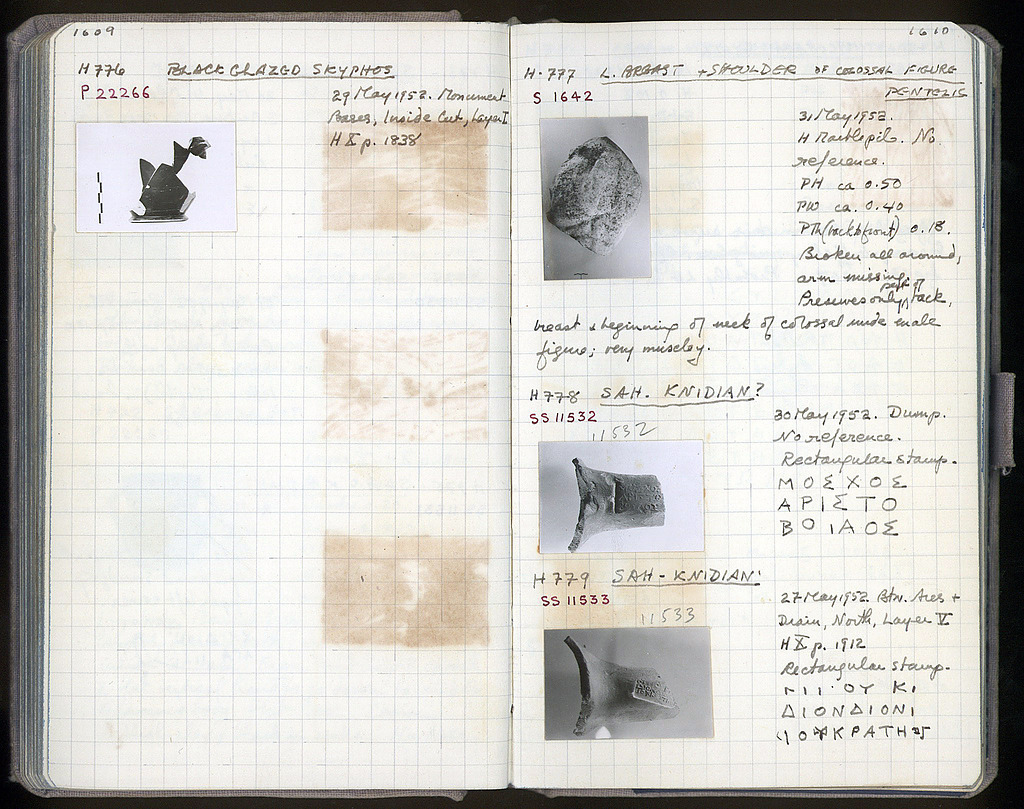 1609
H 776 BLACK GLAZED SKYPHOS
P 22266
29 May 1952. Monument
Bases, Inside Cut, Layer I
H X p. 1838
1610
H. 777 L. BREAST + SHOULDER OF COLOSSAL FIGURE
PENTELIC
S 1642
31 May 1952.
H Marble pile. No
reference.
PH ca 0.50
PW ca. 0.40
PTh (back to front) 0.18.
Broken all around,
arm missing.
Preserves only part of back,
breast & beginning of neck of colossal nude male
figure; very muscley.
H 778 SAH. KNIDIAN?
SS 11532
11532
30 May 1952. Dump.
No reference.
Rectangular stamp.
ΜΟΣΧΟΣ
ΑΡΙΣΤΟ
ΒΟΙΛΟΣ
H 779 SAH - KNIDIAN
SS 11533
11533
27 May 1952. Btw. Ares +
Drain, North, Layer V
H X p. 1912
Rectangular stamp.
ΟΥ ΚΙ
ΔΙΟΝΔΙΟΝΙ
ΚΡΑΤΗ